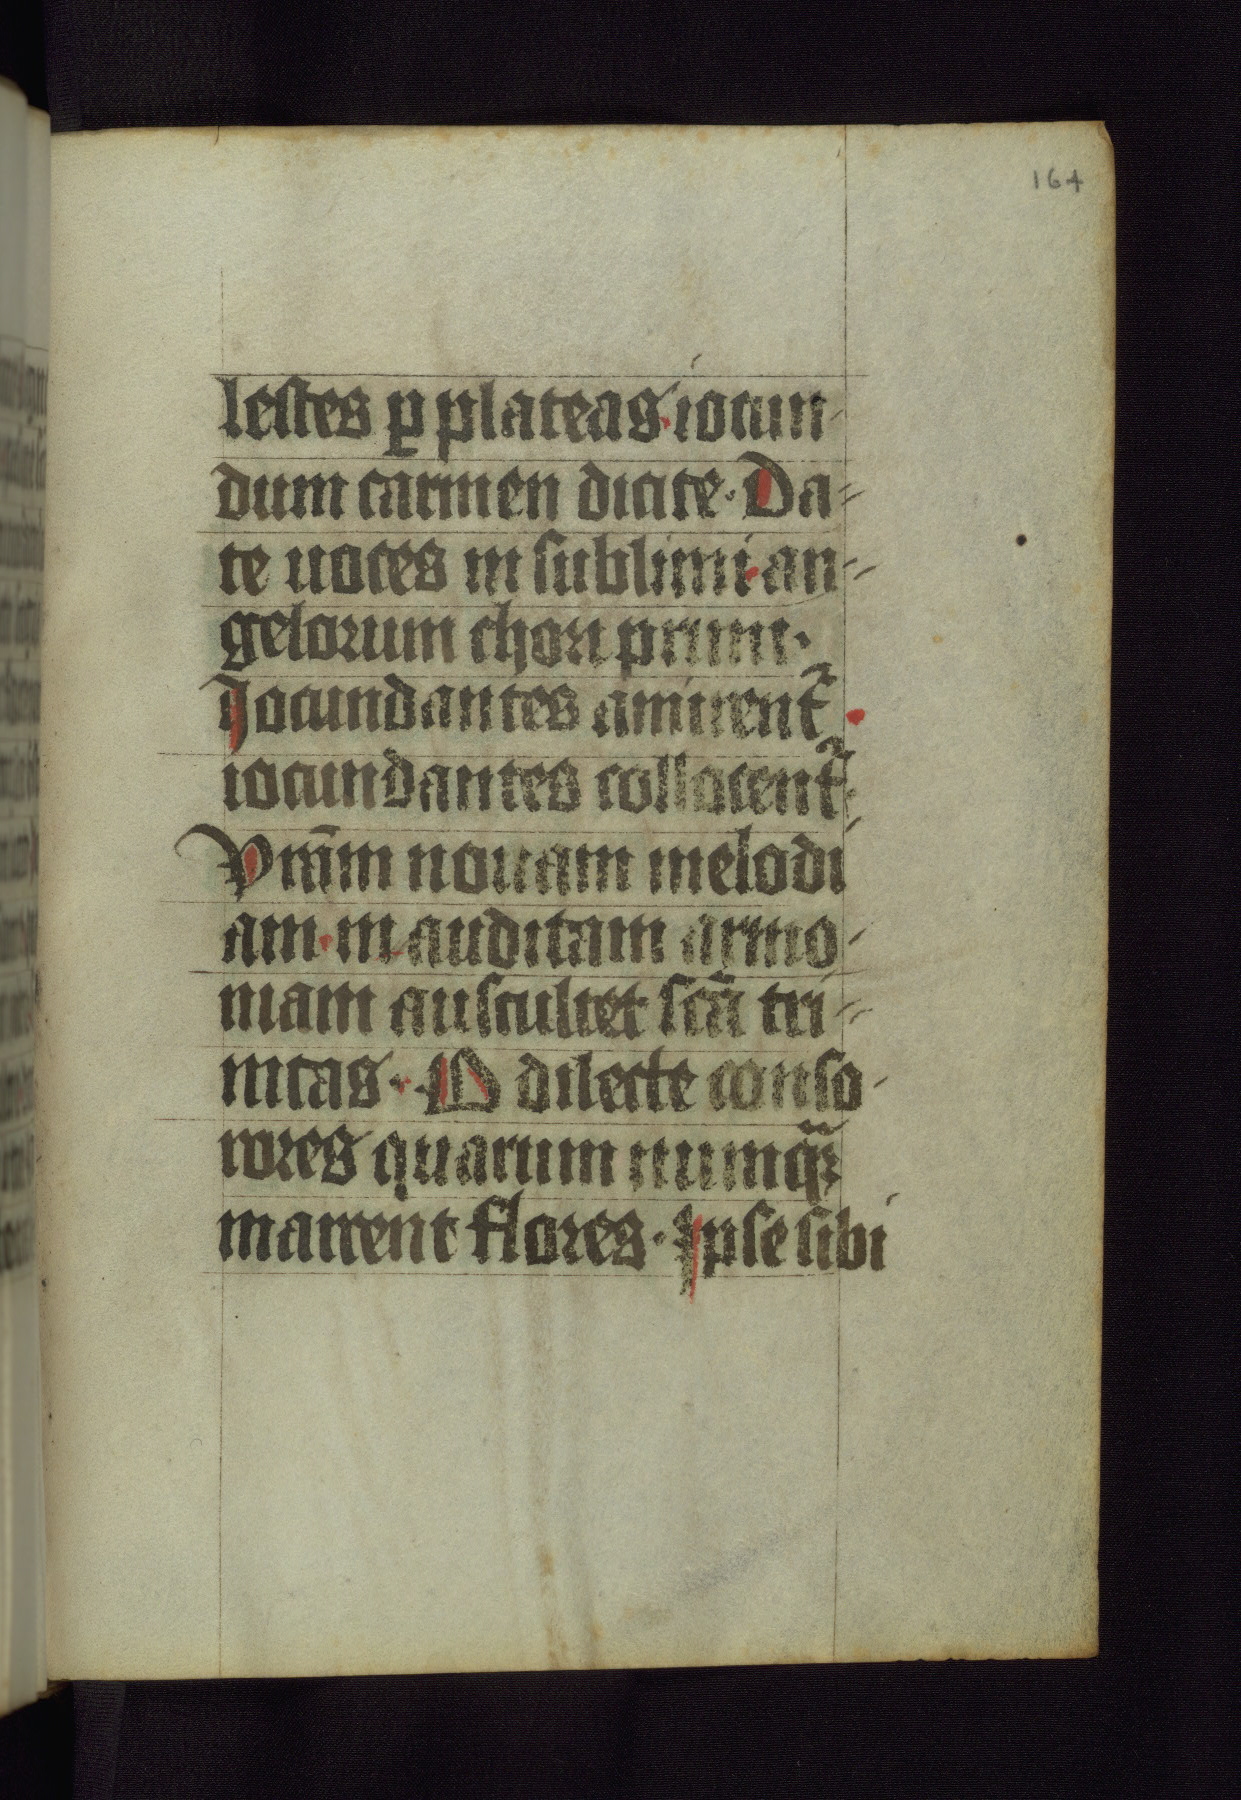 164
lestes ꝑ plateas. iocun-
dum carmen dicite. Da=
te uoces in sublimi. an=
gelorum chori primi.
Jocundantes amirent᷑.
iocundantes collocent᷑.
nouam melodi
am. in auditam armo-
niam auscultet scā tri=
nitas. O dilecte conso-
rores quarum numq̄ꝫ
marrent flores. Ipse sibi